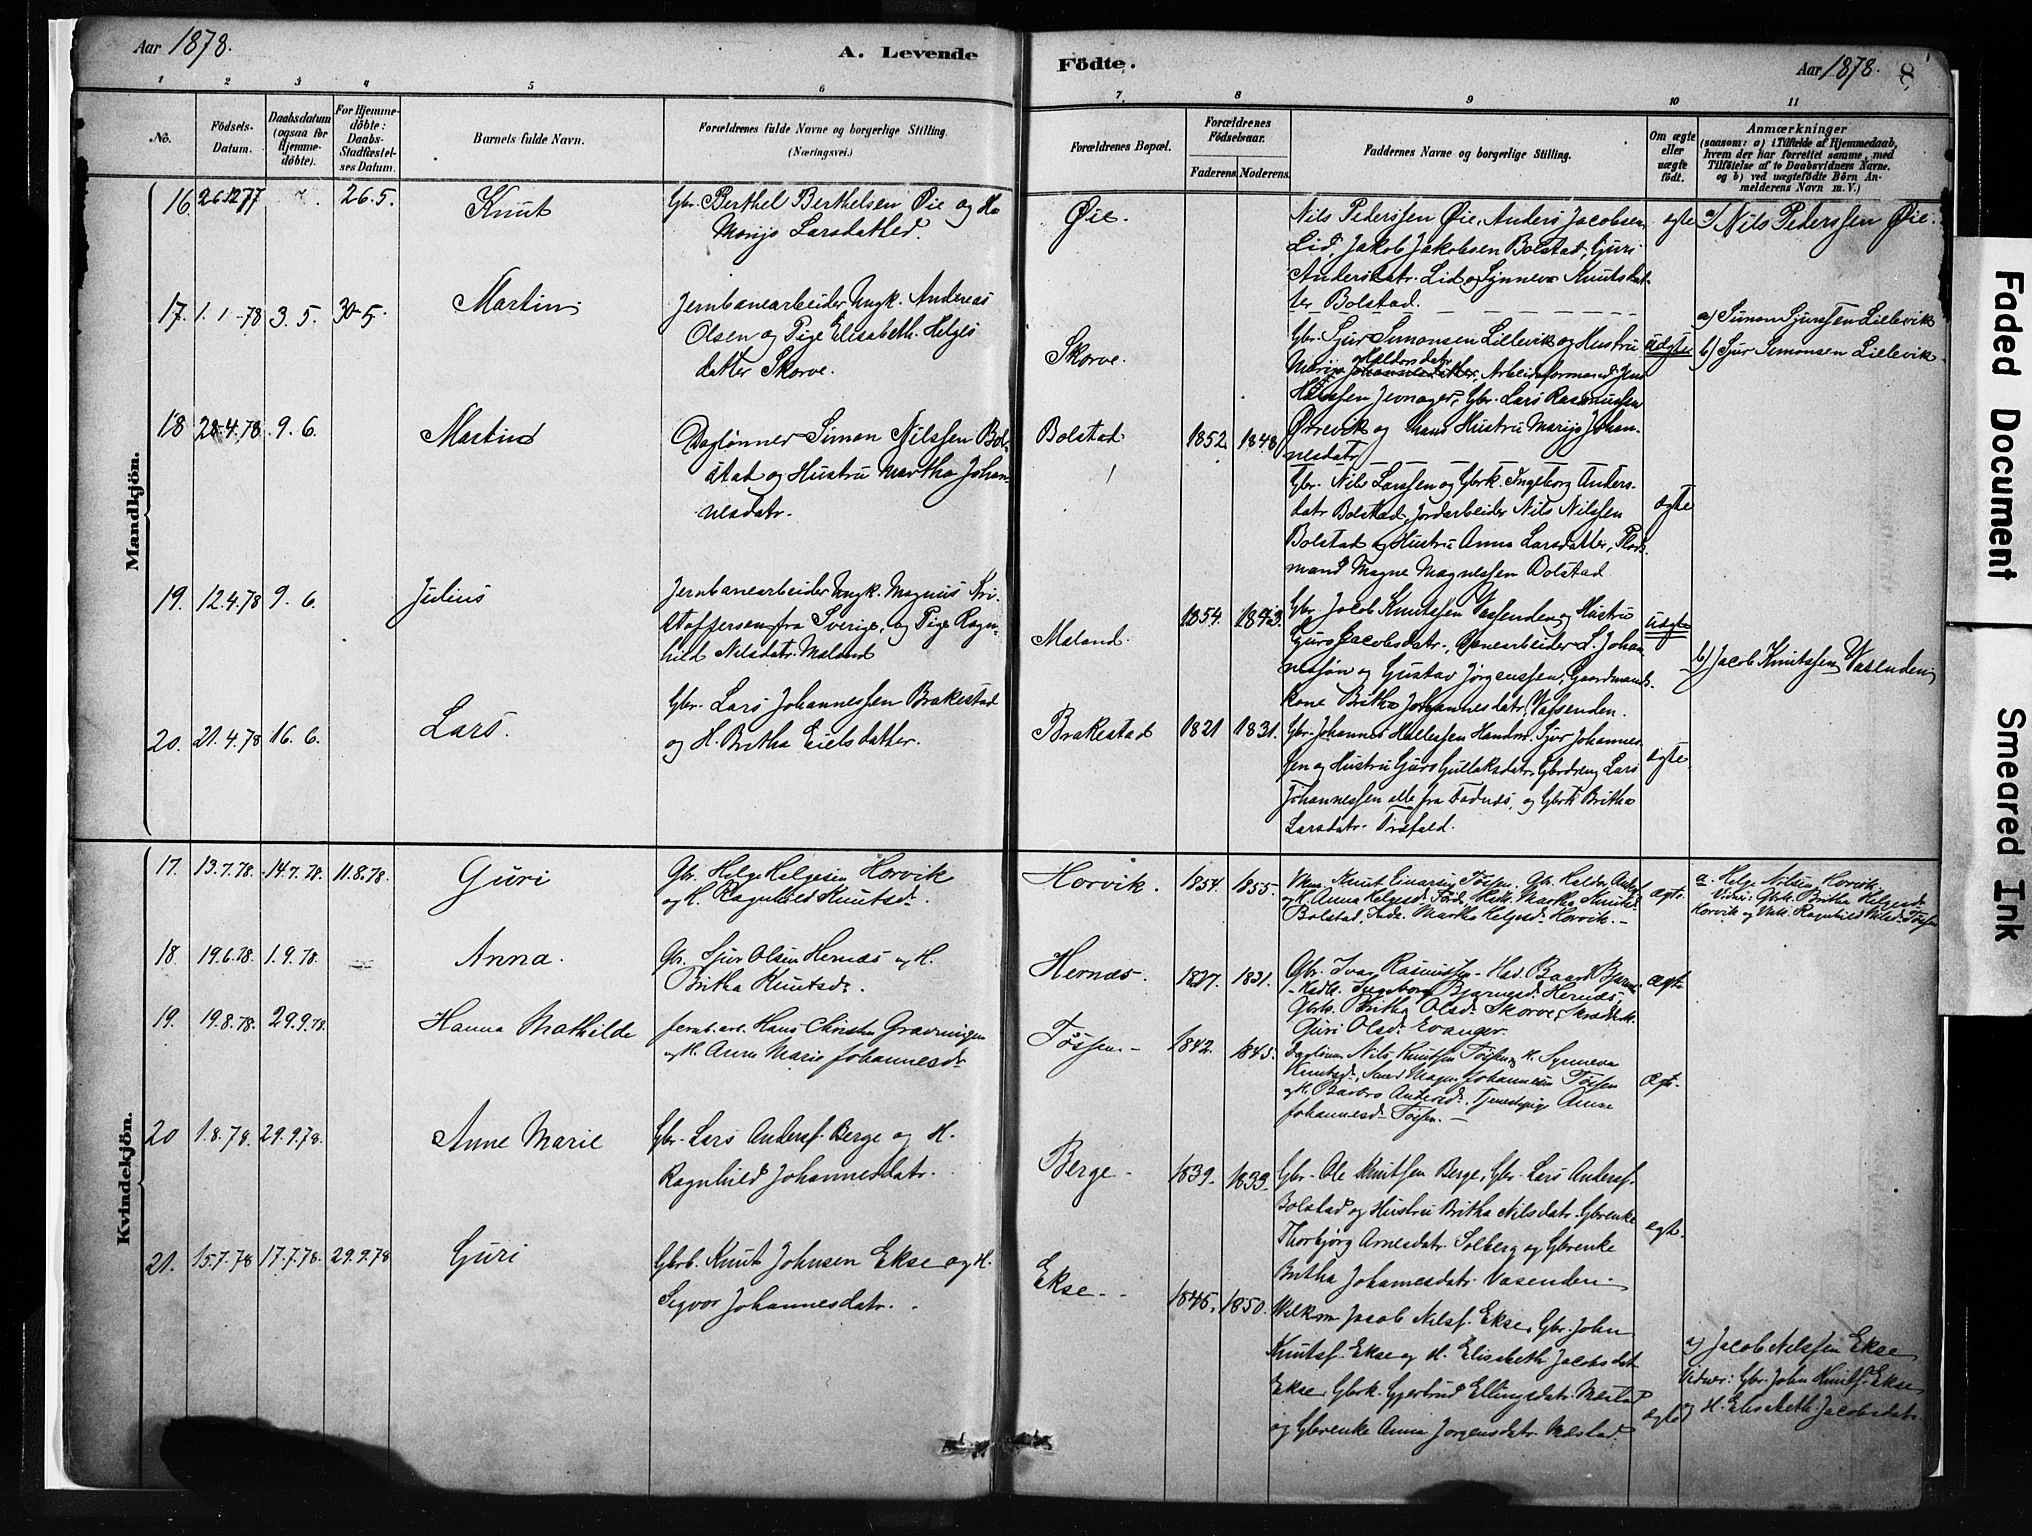 Aar 1878.
A. Levende
Födte.
Aar 1878. 8
1 2 3 4 5 6 7 8 9 10 11
No.
Födsels-
Datum.
Daabsdatum
(ogsaa for
Hjemme-
döbte).
For Hjemme-
döbte:
Daabs-
Stadfæstel-
ses Datum.
Barnets fulde Navn.
Forældrenes fulde Navne og borgerlige Stilling.
(Næringsvei.)
Forældrenes Bopæl.
Forældrenes
Födselsaar.
Faderens. Moderens.
Faddernes Navne og borgerlige Stilling.
Om ægte
eller
uægte
födt.
Anmærkninger
(saasom: a) i Tilfælde af Hjemmedaab,
hvem der har forrettet samme, med
Tilföielse af to Daabsvidners Navne,
og b) ved uægtefödte Börn An-
melderens Navn m. V.)
Mandkjön.
16 26.12.77 26.5. Knut
Gbr. Berthel Berthelsen Øie og H.
Marijo Larsdatter.
Øie.
Nils Pederssen Øie, Anders Jacobsen
Lid, Jakob Jakobsen Bolstad, Guri
Andersdatr. Lid og Synneva Knutsdat-
ter Bolstad.
egte
a) Nils Pederssen Øie.
17. 1.1.78 3.5. 30.5. Martin
Jernbanearbeider Ungk. Andreas
Olsen og Pige Elisabeth Helges
datter Skorve.
Skorve.
Gbr. Sjur Simonsen Lillevik og Hustru
Marijo Haldorsdatr., Arbeidsformand Jens
Jevnager, Gbr. Lars Rasmussen
Ørrevik og hans Hustru Marijo Johan-
nesdatr.
uægte
a) Simon Sjurssen Lillevik
b) Sjur Simonsen Lillevik.
18 28.4.78 9.6. Martin
Daglönner Simon Nilssen Bol-
stad og Hustru Martha Johan-
nesdatr.
Bolstad 1852. 1848
Gbr. Nils Larssen og Gbrk. Ingeborg Anders-
datr Bolstad, Jordarbeider Nils Nilssen
Bolstad og Hustru Anna Larsdatter,
mand Magne Magnessen Bolstad
ægte
19. 12.4.78 9.6. Julius
Jernbanearbeider Ungk. Magnus Kri-
stoffersen fra Sverige, og Pige Ragn-
hild Nilsdatr. Maland
Maland. 1854. 1843.
Gbr. Jacob Knutssen Vassenden og Hustru
Guro Jacobsdatr., Banearbeider L. Johan-
nessøn og Gustav Jørgenssen, Gaardmands-
kone Britha Johannesdatr. Vassenden.
uægte
b) Jacob Knutssen Vasenden
20. 21.4.78 16.6. Lars.
Gbr. Lars Johannessen Brakestad
og H. Britha Eielsdatter.
Brakestad 1821 1831.
Gbr. Johannes Hallessen Handm. Sjur Johannes-
sen og Hustru Guro Gullaksdatr, Gbrdreng Lars
Johannessen alle fra Fadnæs, og Gbrk Britha
Larsdatr.
ægte.
Kvindekjön.
17. 13.7.78. 14.7.78. 11.8.78. Guri
Gbr. Helge Helgesen Horvik
og H. Ragnhild Knutsd.
Horvik. 1854. 1855.
Knut Einarsen Fössen, Gbr. Haldor
og H. Anna Helgesd. Martha Knutsd.
Bolstad. Martha Helgesd. Horvik.
ægt.
a. Helge Nilsen Horvik.
Vidner: Gbrk. Britha Helgesd.
Horvik og Ragnhild Nilsd. Fössen
18. 19.6.78. 1.9.78. — Anna.
Gbr. Sjur Olsen Hernæs og H.
Britha Knutsd.
Hernæs. 1827. 1831.
Gbr. Ivar Rasmussen, Baard
Ingeborg Bjarnesd. Hernæs,
Gbrk. Britha Olsd. Skorve,
Guri Olsd. Evanger.
ægt.
19. 19.8.78. 29.9.78. Hanna Mathilde
Jernb. arb. Hans Christen Gravningen
og H. Anne Marie Johannesd.
Fössen. 1842. 1845.
Daglönner Nils Knutsen Fössen og H. Synneva
Knutsd., Magne Johannesen Fössen
og H. Barbro Andersd., Tjenestepige Anne
Johannesd. Fössen.
ægt.
20 1.8.78. 29.9.78. Anne Marie
Gbr. Lars Anderss. Berge og H.
Ragnhild Johannesdatr.
Berge. 1839. 1839.
Gbr. Ole Knutssen Berge, Gbr. Lars Anderss.
Bolstad og Hustru Britha Nilsdatr. Gbrenke
Thorbjörg Arnesdatr. Solberg og Gbrenke
Britha Johannesdatr. Vasenden.
ægt.
21. 15.7.78 17.7.78. 29.9.78 Guri
Gbrb. Knut Johnsen Ekse og H.
Sigvor Johannesdatr.
Ekse. 1845. 1850.
Jacob Nilss. Ekse, Gbr. John
Knutss. Ekse og H. Elisabeth Jacobsdat.
Ekse, Gbrk. Gjertrud Ellingsdatr. Mæstad
og Gbrenke Anna Jørgensdatr. Mæstad.
ægte
a) Jacob Nilssen Ekse
Vidner: Gbr. John Knutss. Ekse
og H. Elisabeth Jacobsdatr.
Faded Document
Smeared Ink